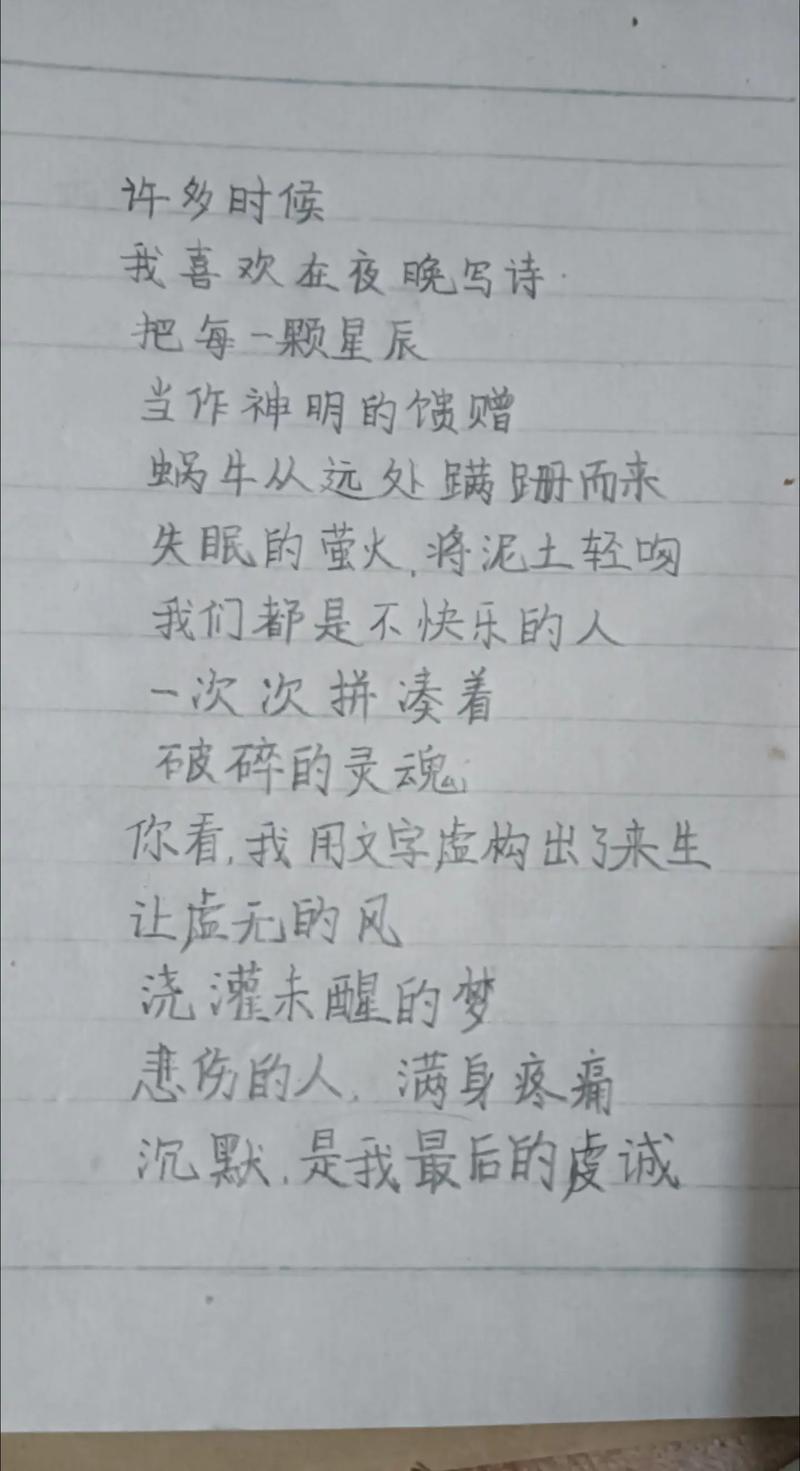 许多时候
我喜欢在夜晚写诗.
把每一颗星辰
当作神明的馈赠
蜗牛从远处蹒跚而来
失眠的萤火,将泥土轻吻
我们都是不快乐的人
一次次拼凑着
破碎的灵魂
你看,我用文字虚构出了来生
让虚无的风
浇灌未醒的梦
悲伤的人,满身疼痛
沉默,是我最后的虔诚